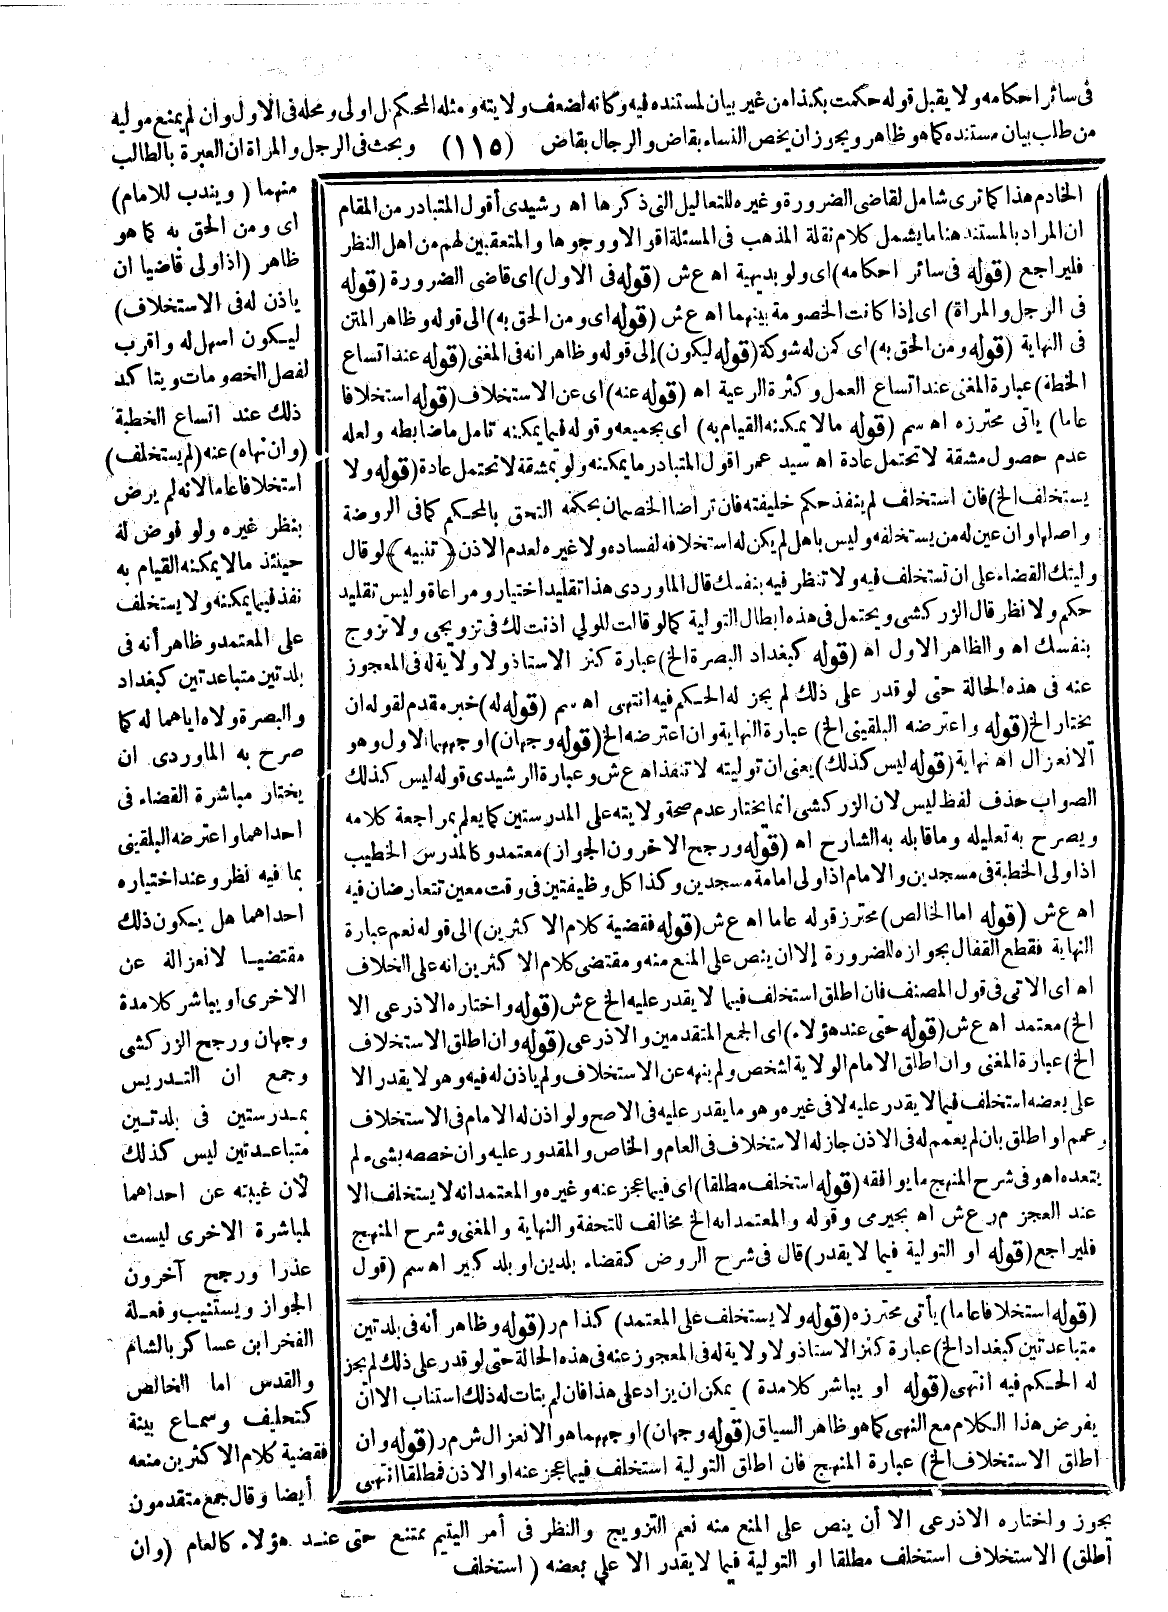 فى سائر احكامه ولا يقبل قوله حكمت بكذا من غير بيان لمستنده فيه وكانه لضعف ولايته ومثله المحكم بل اولى ومحله فى الاول وان لم يمنع موليه
من طلب بيان مستنده كما هو ظاهر ويجوز ان يخص النساء بقاض والرجال بقاض (١١٥) وبحث فى الرجل والمراة ان العبرة بالطالب
منهما (ويندب للامام)
اى ومن الحق به كما هو
ظاهر (اذا ولى قاضيا ان
ياذن له فى الاستخلاف)
ليكون اسهل له واقرب
لفصل الخصومات ويتاكد
ذلك عند اتساع الخطة
(وان نهاه) عنه (لم يستخلف)
استخلافا عاما لانه لم يرض
بنظر غيره ولو فوض له
حينئذ مالا يمكنه القيام به
نفذ فيما يمكنه ولا يستخلف
على المعتمد وظاهر أنه فى
بلدتين متباعدتين كبغداد
والبصرة ولاه اياهما له كما
صرح به الماوردى ان
يختار مباشرة القضاء فى
احداهما واعترضه البلقينى
بما فيه نظر وعند اختياره
احداهما هل يكون ذلك
مقتضيا لانعزاله عن
الاخرى او يباشر كلا مدة
وجهان ورجح الزركشى
وجمع ان التدريس
بمدرستين فى بلدتين
متباعدتين ليس كذلك
لأن غيبته عن احداهما
لمباشرة الاخرى ليست
عذرا ورجح آخرون
الجواز ويستنيب وفعله
الفخر ابن عساكر بالشام
والقدس اما الخالص
كتحليف وسماع بينة
فقضية كلام الاكثرين منعه
أيضا وقال جمع متقدمون
يجوز واختاره الاذرعى الا أن ينص على المنع منه نعم التزويج والنظر فى أمر اليتيم ممتنع حتى عند هؤلاء كالعام (وان
أطلق) الاستخلاف استخلف مطلقا او التولية فيما لا يقدر الا على بعضه (استخلف
الخادم هذا كما ترى شامل لقاضى الضرورة وغيره للتعاليل التى ذكرها اه رشيدى أقول المتبادر من المقام
ان المراد بالمستند هنا ما يشمل كلام نقلة المذهب فى المسئلة اقوالا ووجوها والمتعقبين لهم من اهل النظر
فليراجع (قوله فى سائر احكامه) اى ولو بديهية اه ع ش (قوله فى الاول) اى قاضى الضرورة (قوله
فى الرجل والمراة) اى إذا كانت الخصومة بينهما اه ع ش (قوله اى ومن الحق به) الى قوله وظاهر المتن
فى النهاية (قوله ومن الحق به) اى كمن له شوكة (قوله ليكون) إلى قوله وظاهر انه فى المغنى (قوله عند اتساع
الخطة) عبارة المغنى عند اتساع العمل وكثرة الرعية اه (قوله عنه) اى عن الاستخلاف (قوله استخلافا
عاما) ياتى محترزه اه سم (قوله مالا يمكنه القيام به) اى بجميعه وقوله فيما يمكنه تامل ما ضابطه ولعله
عدم حصول مشقة لا تحتمل عادة اه سيد عمر اقول المتبادر ما يمكنه ولو بمشقة لا تحتمل عادة (قوله ولا
يستخلف الخ) فان استخلف لم ينفذ حكم خليفته فان تراضا الخصمان بحكمه التحق بالمحكم كما فى الروضة
واصلها وان عين له من يستخلفه وليس باهل لم يكن له استخلافه لفساده ولا غيره لعدم الاذن (تنبيه) لو قال
وليتك القضاء على ان تستخلف فيه ولا تنظر فيه بنفسك قال الماوردى هذا تقليد اختيار ومراعاة وليس تقليد
حكم ولا نظر قال الزركشى ويحتمل فى هذه ابطال التولية كما لو قالت للولي اذنت لك فى تزويجى ولا تزوج
بنفسك اه والظاهر الاول اه (قوله كبغداد البصرة الخ) عبارة كنز الاستاذ ولا ولاية له فى المعجوز
عنه فى هذه الحالة حتى لو قدر على ذلك لم يجز له الحكم فيه انتهى اه سم (قوله له) خبر مقدم لقوله ان
يختار الخ (قوله واعترضه البلقينى الخ) عبارة النهاية وان اعترضه الخ (قوله وجهان) اوجههما الاول وهو
الانعزال اه نهاية (قوله ليس كذلك) يعنى ان توليته لا تنفذ اه ع ش وعبارة الرشيدى قوله ليس كذلك
الصواب حذف لفظ ليس لان الزركشى انما يختار عدم صحة ولايته على المدرستين كما يعلم بمراجعة كلامه
ويصرح به تعليله وما قابله به الشارح اه (قوله ورجح الاخرون الجواز) معتمد وكالمدرس الخطيب
اذا ولى الخطبة فى مسجدين والامام اذا ولى امامة مسجدين وكذا كل وظيفتين فى وقت معين تتعارضان فيه
اه ع ش (قوله اما الخالص) محترز قوله عاما اه ع ش (قوله فقضية كلام الاكثرين) الى قوله نعم عبارة
النهاية فقطع القفال بجوازه للضرورة إلا ان ينص على المنع منه ومقتضى كلام الاكثرين انه على الخلاف
اه اى الاتى فى قول المصنف فان اطلق استخلف فيما لا يقدر عليه الخ ع ش (قوله واختاره الاذرعى الا
الخ) معتمد اه ع ش (قوله حتى عند هؤلاء) اى الجمع المتقدمين والاذرعى (قوله وان اطلق الاستخلاف
الخ) عبارة المغنى وان اطلق الامام الولاية لشخص ولم ينهه عن الاستخلاف ولم ياذن له فيه وهو لا يقدر الا
على بعضه استخلف فيما لا يقدر عليه لا فى غيره وهو ما يقدر عليه فى الاصح ولو اذن له الامام فى الاستخلاف
وعمم او اطلق بان لم يعمم له فى الاذن جاز له الاستخلاف فى العام والخاص والمقدور عليه وان خصصه بشىء لم
يتعده اه وفى شرح المنهج ما يوافقه (قوله استخلف مطلقا) اى فيما عجز عنه وغيره والمعتمد انه لا يستخلف الا
عند العجز م ر ع ش اه بجيرمى وقوله والمعتمد انه الخ مخالف للتحفة والنهاية والمغنى وشرح المنهج
فليراجع (قوله او التولية فيما لا يقدر) قال فى شرح الروض كقضاء بلدين او بلد كبير اه سم (قول
(قوله استخلافا عاما) يأتى محترزه (قوله ولا يستخلف على المعتمد) كذا م ر (قوله وظاهر أنه فى بلدتين
متباعدتين كبغداد الخ) عبارة كنز الاستاذ ولا ولاية له فى المعجوز عنه فى هذه الحالة حتى لو قدر على ذلك لم يجز
له الحكم فيه انتهى (قوله او يباشر كلا مدة) يمكن ان يزاد على هذا فان لم يتات له ذلك استناب الا ان
يفرض هذا الكلام مع النهى كما هو ظاهر السياق (قوله وجهان) اوجههما هو الانعزال ش م ر (قوله وان
اطلق الاستخلاف الخ) عبارة المنهج فان اطلق التولية استخلف فيما عجز عنه او الاذن فمطلقا انتهى